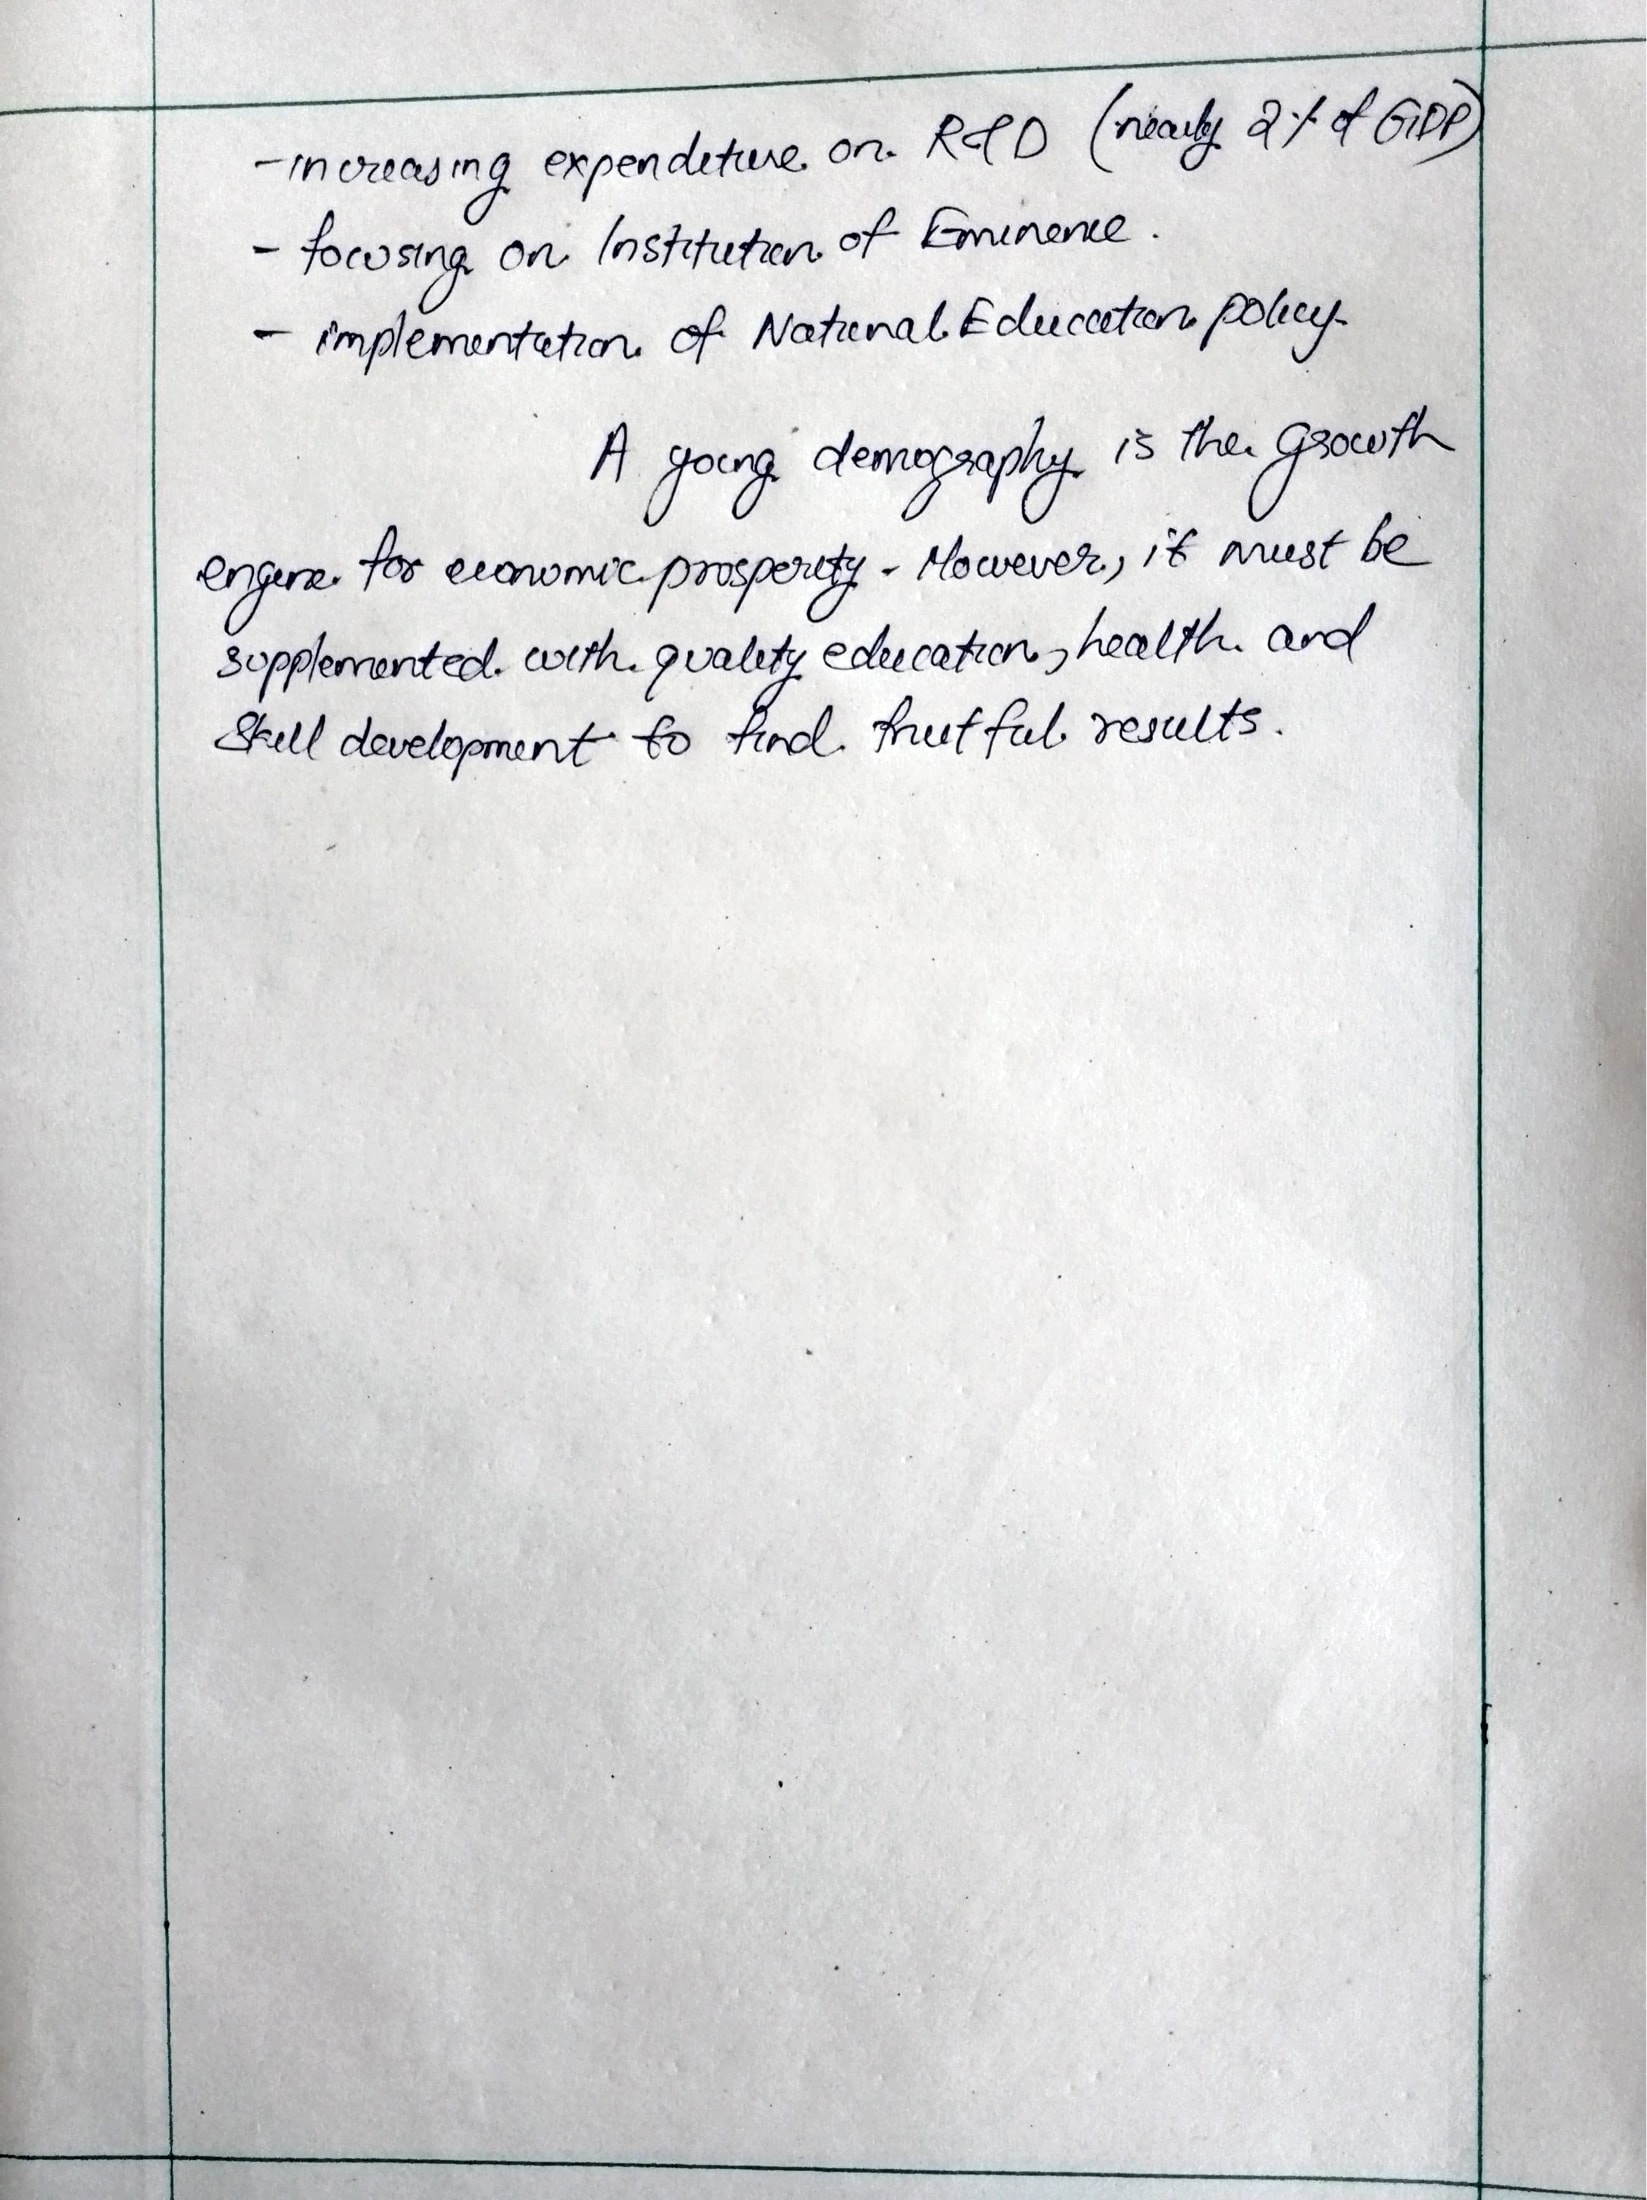 - increasing expenditure on R&D (nearly 2% of GDP)
- focusing on Institution of Eminence.
- implementation of National Education policy.
A young demography is the Growth
engine for economic prosperity. However, it must be
supplemented with quality education, health and
Skill development to find fruitful results.